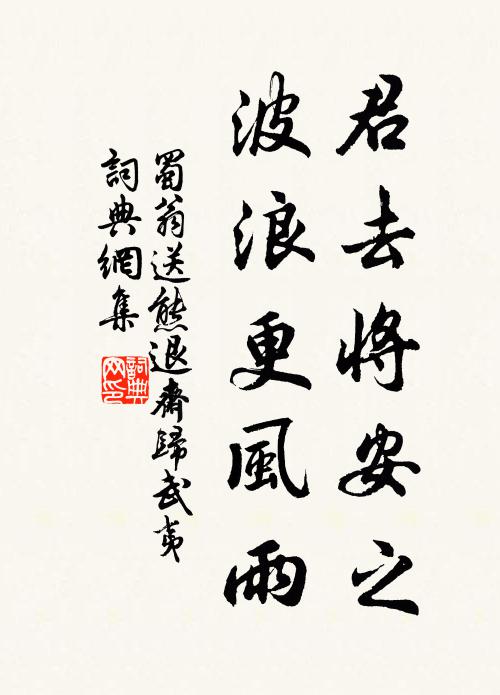 君去將安之
波浪更風雨
蜀翁送熊退齋歸武夷
詞典網集
詞典網印